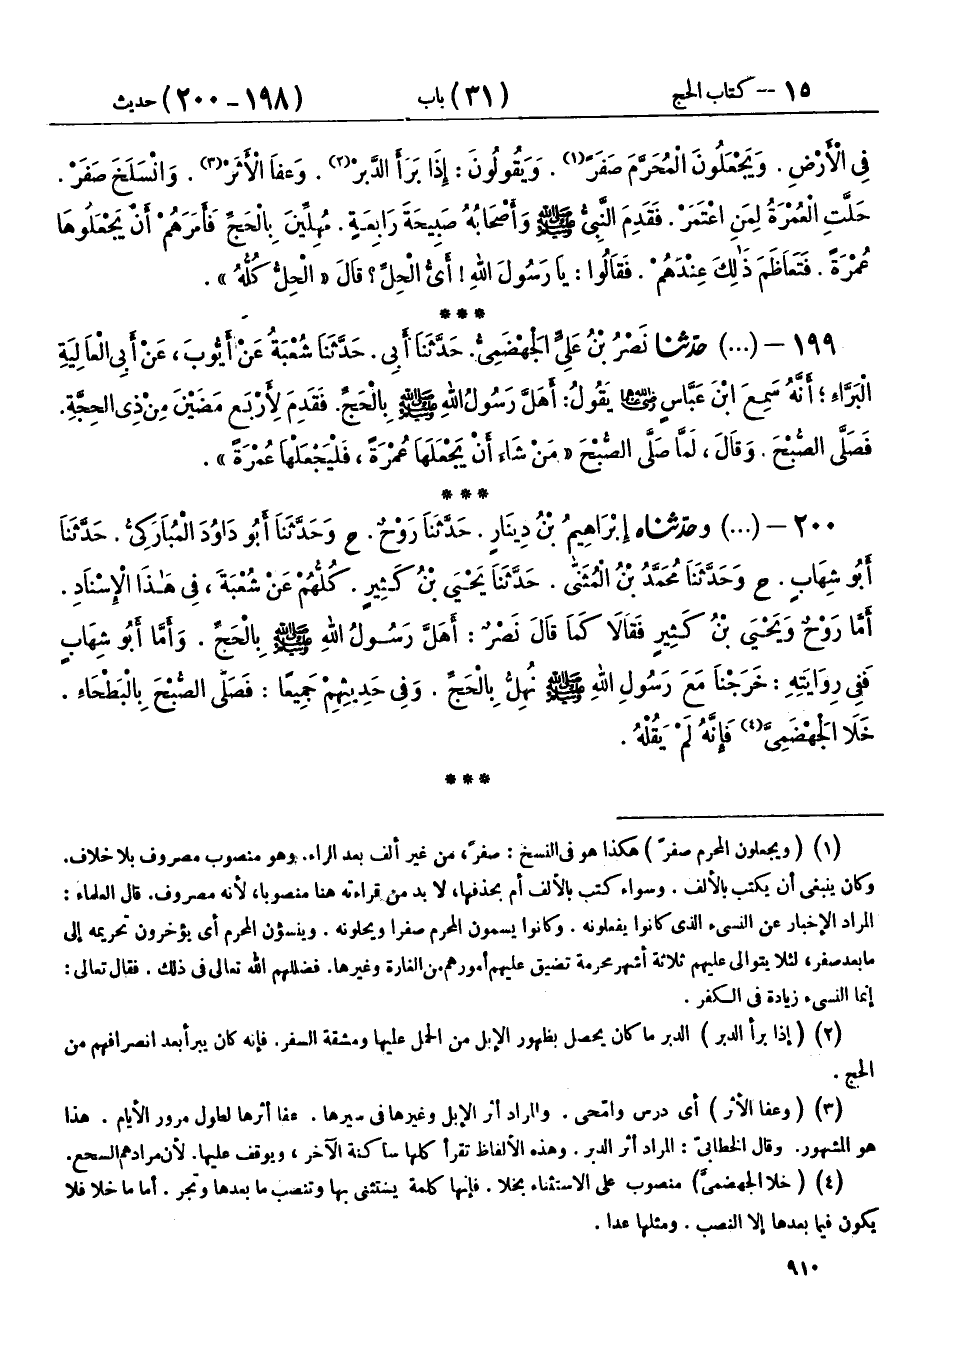 ١٥ -- كتاب الحج (٣١) باب (١٩٨ - ٢٠٠) حديث
فِي الْأَرْضِ . وَيَجْعَلُونَ الْمُحَرَّمَ صَفَرَ(١) . وَيَقُولُونَ : إِذَا بَرَأَ الدَّبَرْ(٢) . وَعَفَا الْأَثَرْ(٣) . وَانْسَلَخَ صَفَرْ .
حَلَّتِ الْعُمْرَةُ لِمَنِ اعْتَمَرْ . فَقَدِمَ النَّبِيُّ ﷺ وَأَصْحَابُهُ صَبِيحَةَ رَابِعَةٍ . مُهِلِّينَ بِالْحَجِّ فَأَمَرَهُمْ أَنْ يَجْعَلُوهَا
عُمْرَةً . فَتَعَاظَمَ ذَٰلِكَ عِنْدَهُمْ . فَقَالُوا : يَا رَسُولَ اللهِ ! أَيُّ الْحِلِّ ؟ قَالَ « الْحِلُّ كُلُّهُ » .
***
١٩٩ - (...) حَدَّثَنَا نَصْرُ بْنُ عَلِيٍّ الْجَهْضَمِيُّ . حَدَّثَنَا أَبِي . حَدَّثَنَا شُعْبَةُ عَنْ أَيُّوبَ ، عَنْ أَبِي الْعَالِيَةِ
الْبَرَّاءِ ؛ أَنَّهُ سَمِعَ ابْنَ عَبَّاسٍ رضي الله عنهما يَقُولُ : أَهَلَّ رَسُولُ اللهِ ﷺ بِالْحَجِّ . فَقَدِمَ لِأَرْبَعٍ مَضَيْنَ مِنْ ذِي الْحِجَّةِ .
فَصَلَّى الصُّبْحَ . وَقَالَ ، لَمَّا صَلَّى الصُّبْحَ « مَنْ شَاءَ أَنْ يَجْعَلَهَا عُمْرَةً ، فَلْيَجْعَلْهَا عُمْرَةً » .
***
٢٠٠ - (...) وحَدَّثَنَاهُ إِبْرَاهِيمُ بْنُ دِينَارٍ . حَدَّثَنَا رَوْحٌ . ح وَحَدَّثَنَا أَبُو دَاوُدَ الْمُبَارَكِيُّ . حَدَّثَنَا
أَبُو شِهَابٍ . ح وَحَدَّثَنَا مُحَمَّدُ بْنُ الْمُثَنَّى . حَدَّثَنَا يَحْيَى بْنُ كَثِيرٍ . كُلُّهُمْ عَنْ شُعْبَةَ ، فِي هَٰذَا الْإِسْنَادِ .
أَمَّا رَوْحٌ وَيَحْيَى بْنُ كَثِيرٍ فَقَالَا كَمَا قَالَ نَصْرٌ : أَهَلَّ رَسُولُ اللهِ ﷺ بِالْحَجِّ . وَأَمَّا أَبُو شِهَابٍ
فَفِي رِوَايَتِهِ : خَرَجْنَا مَعَ رَسُولِ اللهِ ﷺ نُهِلُّ بِالْحَجِّ . وَفِي حَدِيثِهِمْ جَمِيعًا : فَصَلَّى الصُّبْحَ بِالْبَطْحَاءِ .
خَلَا الْجَهْضَمِيَّ(٤) فَإِنَّهُ لَمْ يَقُلْهُ .
***
(١) ( ويجعلون المحرم صفرَ ) هكذا هو في النسخ : صفرَ ، من غير ألف بعد الراء. وهو منصوب مصروف بلا خلاف.
وكان ينبغى أن يكتب بالألف . وسواء كتب بالألف أم بحذفها، لا بد من قراءته هنا منصوبا، لأنه مصروف. قال العلماء :
المراد الإخبار عن النسىء الذى كانوا يفعلونه . وكانوا يسمون المحرم صفرا ويحلونه . وينسؤن المحرم أى يؤخرون تحريمه إلى
ما بعد صفر، لئلا يتوالى عليهم ثلاثة أشهر محرمة تضيق عليهم أمورهم من الغارة وغيرها. فضللهم الله تعالى فى ذلك . فقال تعالى :
إنما النسىء زيادة فى الكفر .
(٢) ( إذا برأ الدبر ) الدبر ما كان يحصل بظهور الإبل من الحمل عليها ومشقة السفر. فإنه كان يبرأ بعد انصرافهم من
الحج .
(٣) ( وعفا الأثر ) أى درس وامّحى . والمراد أثر الإبل وغيرها فى سيرها . عفا أثرها لطول مرور الأيام . هذا
هو المشهور. وقال الخطابىّ : المراد أثر الدبر . وهذه الألفاظ تقرأ كلها ساكنة الآخر ، ويوقف عليها. لأن مرادهم السجع.
(٤) ( خلا الجهضمىَّ) منصوب على الاستثناء بخلا . فإنها كلمة يستثنى بها وتنصب ما بعدها وتجر . أما ما خلا فلا
يكون فيما بعدها إلا النصب . ومثلها عدا .
٩١٠